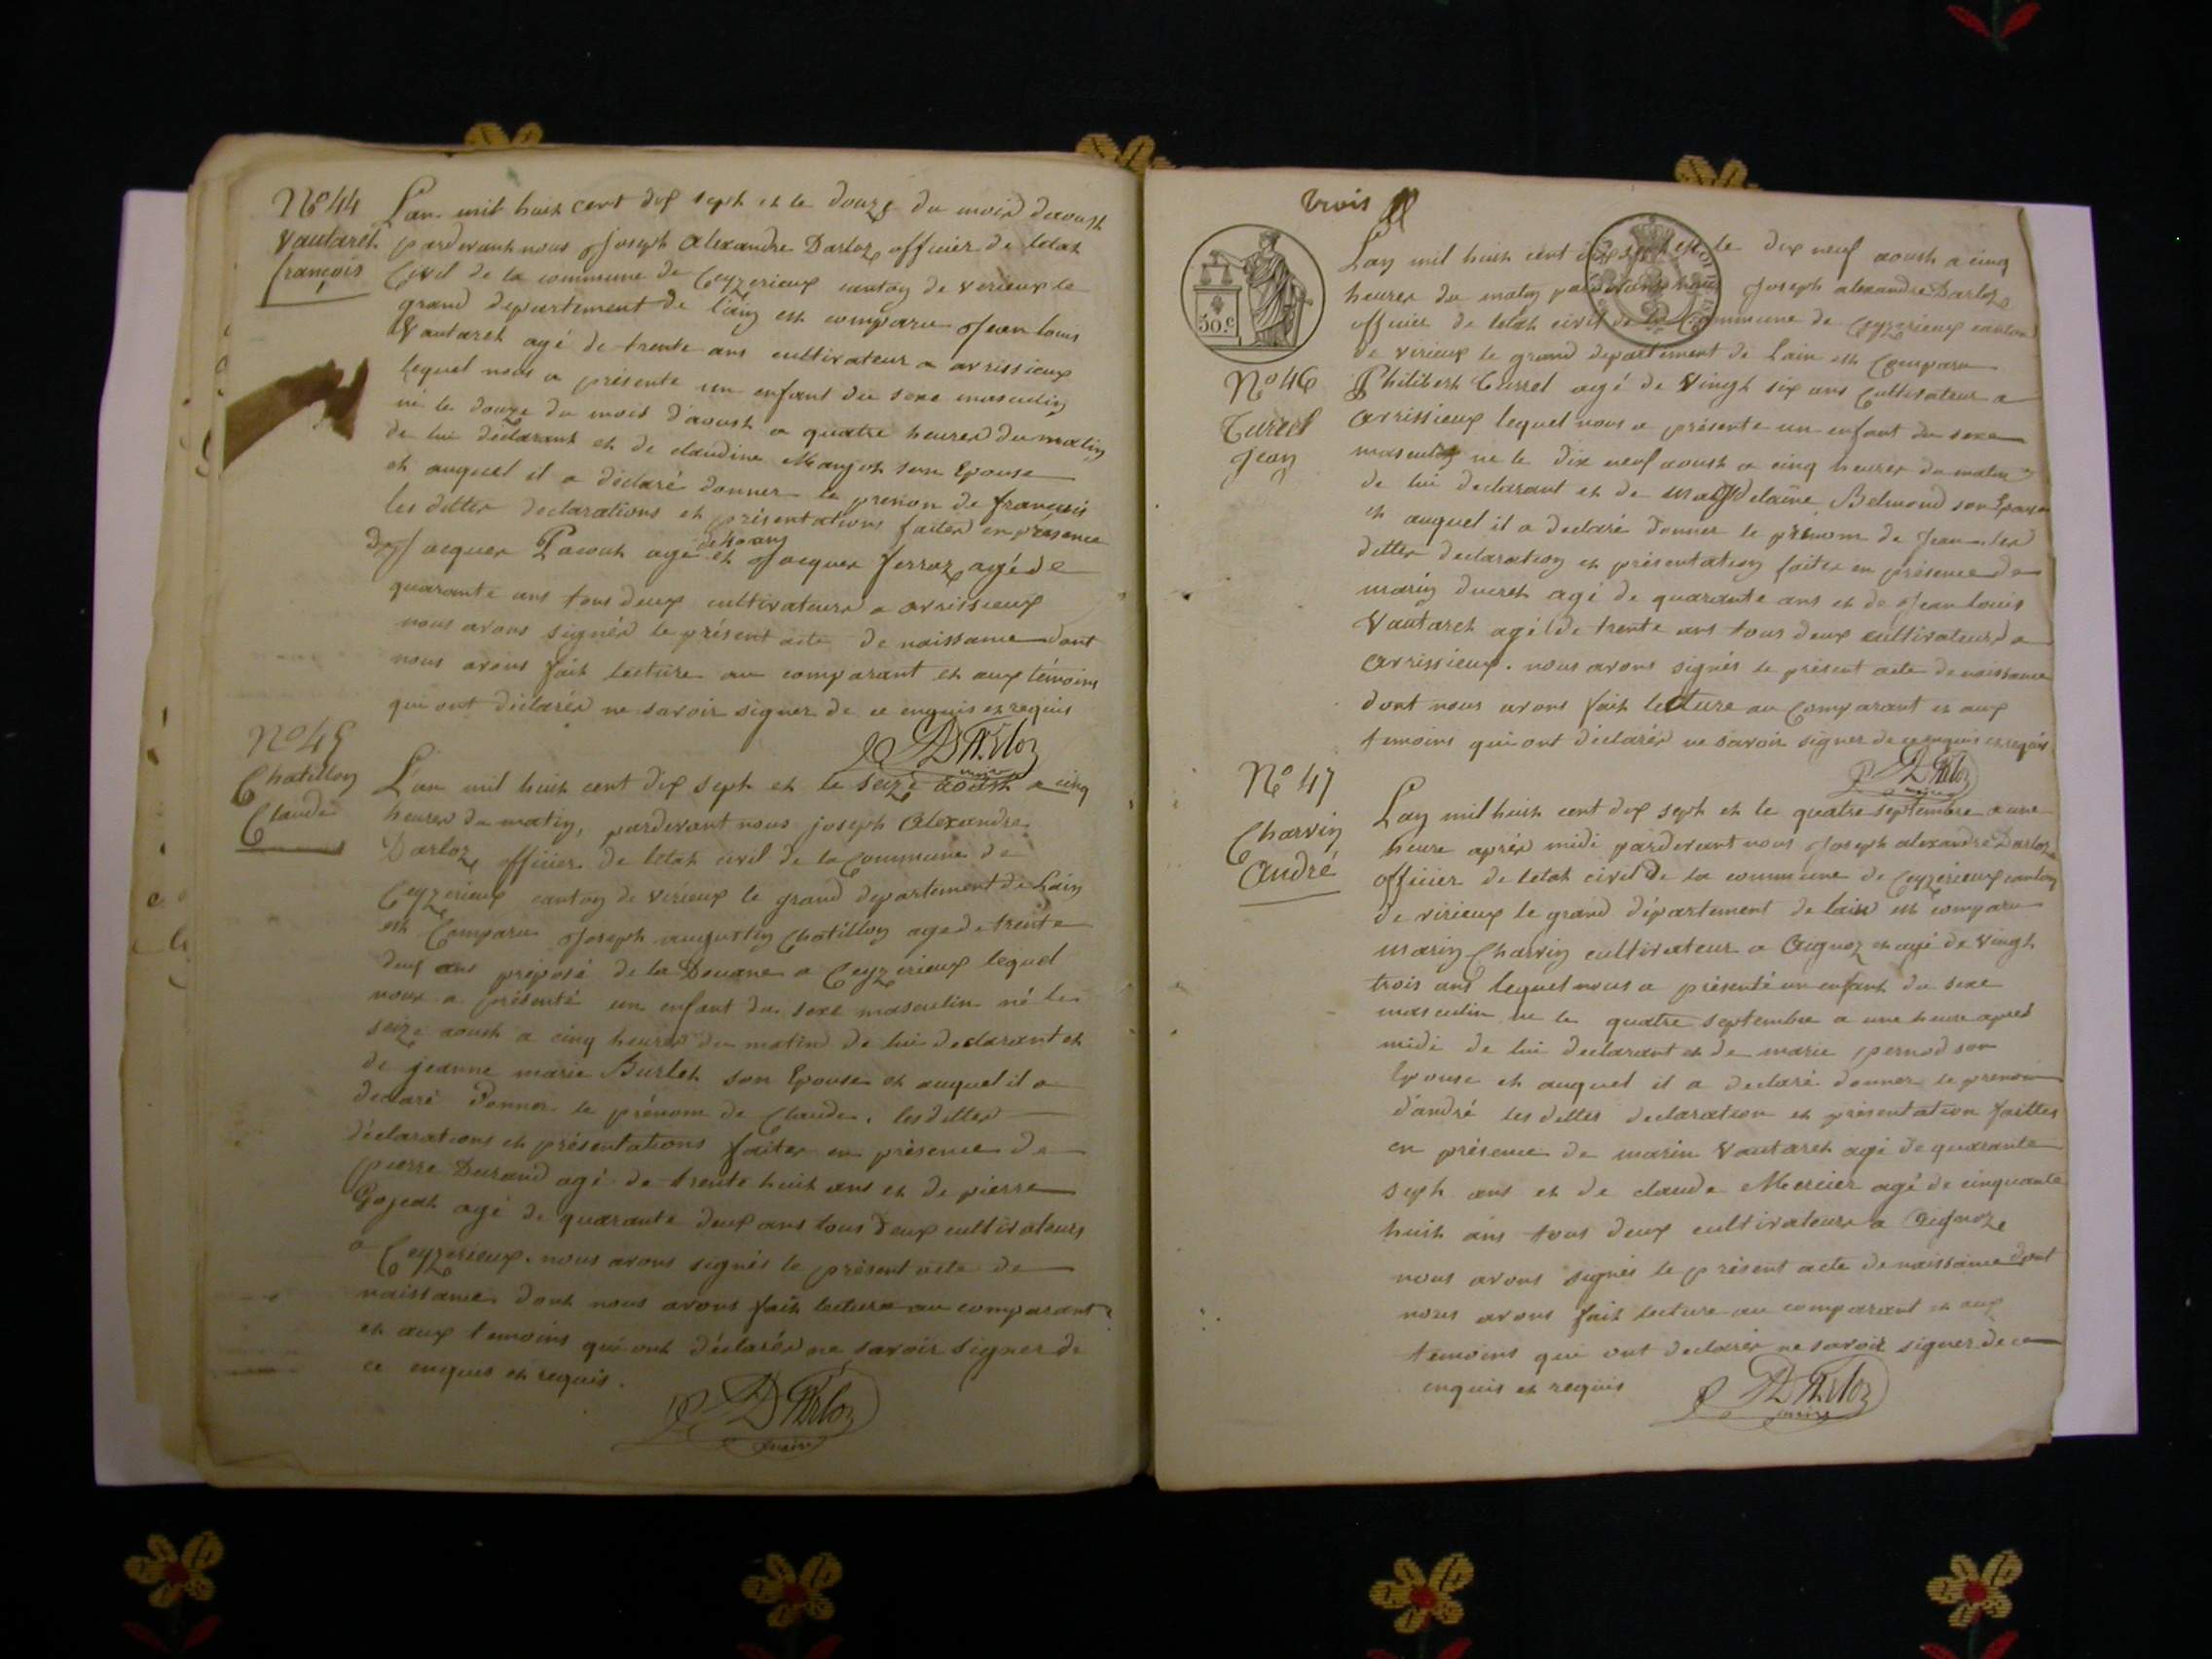 N° 44
Vautaret
françois
L'an mil huit cent dix sept et le douze du mois d'aoust
pardevant nous Joseph Alexandre Darloz officier de letat
Civil de la commune de Ceyzerieux canton de virieux le
grand departement de l'ain est comparu Jean louis
Vautaret agé de trente ans cultivateur a avrissieux
lequel nous a présenté un enfant du sexe masculin
né le douze du mois d'aoust a quatre heures du matin
de lui déclarant et de claudine Manjot son Epouse
et auquel il a déclaré donner le prenom de françois
les dittes declarations et présentations faites en présence
de Jacques Pacout agé de 40 ans et Jacques ferroz agé de
quarante ans tous deux cultivateurs a avrissieux
nous avons signés le présent acte de naissance dont
nous avons fait lecture au comparant et aux témoins
qui ont déclarés ne savoir signer de ce enquis et requis
Darloz
maire
N° 45
Chatillon
Claude
L'an mil huit cent dix sept et le seize aoust a cinq
heures du matin, pardevant nous joseph Alexandre
Darloz officier de letat civil de la Commune de
Ceyzerieux canton de virieux le grand departement de Lain
est Comparu Joseph augustin Chatillon agé de trente
deux ans préposé de la Douane a Ceyzerieux lequel
nous a présenté un enfant du sexe masculin né le
seize aoust a cinq heures du matin de lui declarant et
de jeanne marie Burlet son Epouse et auquel il a
declaré Donner le prénom de Claude. les dittes
déclarations et présentations faites en présence de
pierre Durand agé de trente huit ans et de pierre
Gojeat agé de quarante deux ans tous deux cultivateurs
a Ceyzerieux. nous avons signés le présent acte de
naissance dont nous avons fait lecture au comparant
et aux temoins qui ont déclarés ne savoir signer de
ce enquis et requis.
Darloz
maire
trois
50 c
N° 46
Curret
Jean
Lan mil huit cent dix sept et le dix neuf aoust a cinq
heures du matin pardevant nous Joseph alexandre Darloz
officier de letat civil de la Commune de Ceyzerieux canton
de virieux le grand departement de Lain est Comparu
Philibert Curret agé de Vingt six ans Cultivateur a
avrissieux lequel nous a présenté un enfant du sexe
masculin né le dix neuf aoust a cinq heures du matin
de lui declarant et de Magdelaine Belmond son Epouse
et auquel il a declaré donner le prénom de Jean les
dittes declaration et présentation faites en présence de
marin ducret agé de quarante ans et de Jean louis
Vautaret agé de trente ans tous deux cultivateurs a
avrissieux. nous avons signés le présent acte de naissance
dont nous avons fait lecture au Comparant et aux
temoins qui ont déclarés ne savoir signer de ce enquis et requis
Darloz
maire
N° 47
Charvin
André
Lan mil huit cent dix sept et le quatre septembre a une
heure après midi pardevant nous Joseph alexandre Darloz
officier de letat civil de la commune de Ceyzerieux canton
de virieux le grand département de lain est comparu
marin Charvin cultivateur a Aignoz et agé de vingt
trois ans lequel nous a présenté un enfant du sexe
masculin né le quatre septembre a une heure apres
midi de lui declarant et de marie pernod son
Epouse et auquel il a declaré donner le prenom
d'andré les dittes declaration et présentation faittes
en présence de marin Vautaret agé de quarante
sept ans et de claude Mercier agé de cinquante
huit ans tous deux cultivateurs a Aignoz
nous avons signés le présent acte de naissance dont
nous avons fait lecture au comparant et aux
temoins qui ont declarés ne savoir signer de ce
enquis et requis
Darloz
maire